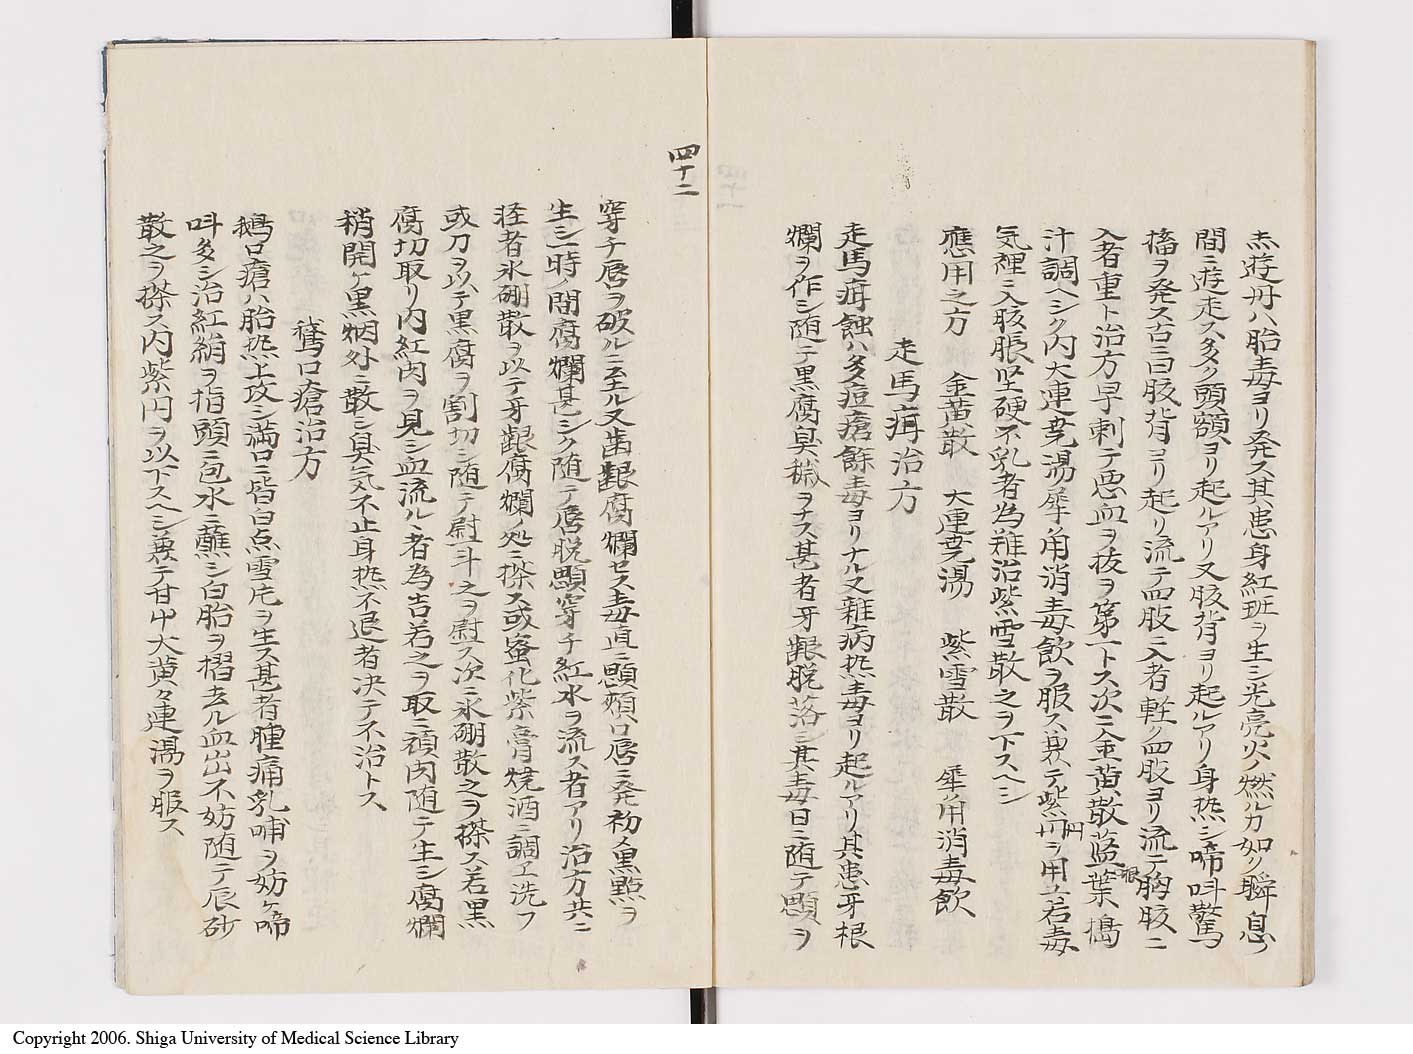 赤遊丹ハ胎毒ヨリ発ス其患身紅斑ヲ生シ光亮火ノ燃ルカ如ク瞬息ノ
間ニ遊走ス多ク頭額ヨリ起ルアリ又胲背ヨリ起ルアリ身热シ啼呌驚
搐ヲ発ス古ニ曰胲背ヨリ起リ流テ四肢ニ入者軽ク四肢ヨリ流テ胸胲ニ
入者重ト治方早刺テ悪血ヲ抜ヲ第一トス次ニ金黄散藍葉根搗
汁調ヘシク内大連翹湯犀角消毒飲ヲ服ス兼テ紫円ヲ用エ若毒
気裡ニ入胲脹坚硬不乳者為難治紫雪散之ヲ下スヘシ
應用之方 金黄散 大連翹湯 紫雪散 犀角消毒飲
走馬疳治方
走馬疳蝕ハ多痘瘡餘毒ヨリナル又雜病热毒ヨリ起ルアリ其患牙根
爛ヲ作シ随テ黒腐臭穢ヲナス甚者牙齦脱落シ其毒日ニ随テ顋ヲ
四十二
穿チ唇ヲ破ルニ至ル又歯齦腐爛セス毒直ニ顋頬口唇ニ発初メ黒點ヲ
生シ一時ノ間腐爛甚シク随テ唇脱顋穿チ紅水ヲ流ス者アリ治方共ニ
軽者氷硼散ヲ以テ牙齦腐爛ノ処ニ搽ス或蜜化紫膏焼酒ニ調エ洗フ
或刀ヲ以テ黒腐ヲ割切シ随テ尉斗之ヲ尉ス次ニ氷硼散之ヲ搽ス若黒
腐切取リ内紅肉ヲ見シ血流ルヽ者為吉若之ヲ取ニ頑肉随テ生シ腐爛
稍開ケ黒烟外ニ散シ臭気不止身热不退者决テ不治トス
鵞口瘡治方
鵝口瘡ハ胎热上攻シ満口ニ皆白点雪片ヲ生ス甚者腫痛乳哺ヲ妨ケ啼
呌多シ治紅絹ヲ指頭ニ包水ニ蘸シ白胎ヲ摺去ル血出不妨随テ辰砂
散之ヲ搽ス内紫円ヲ以下スヘシ兼テ甘中大黄々連湯ヲ服ス
Copyright 2006. Shiga University of Medical Science Library